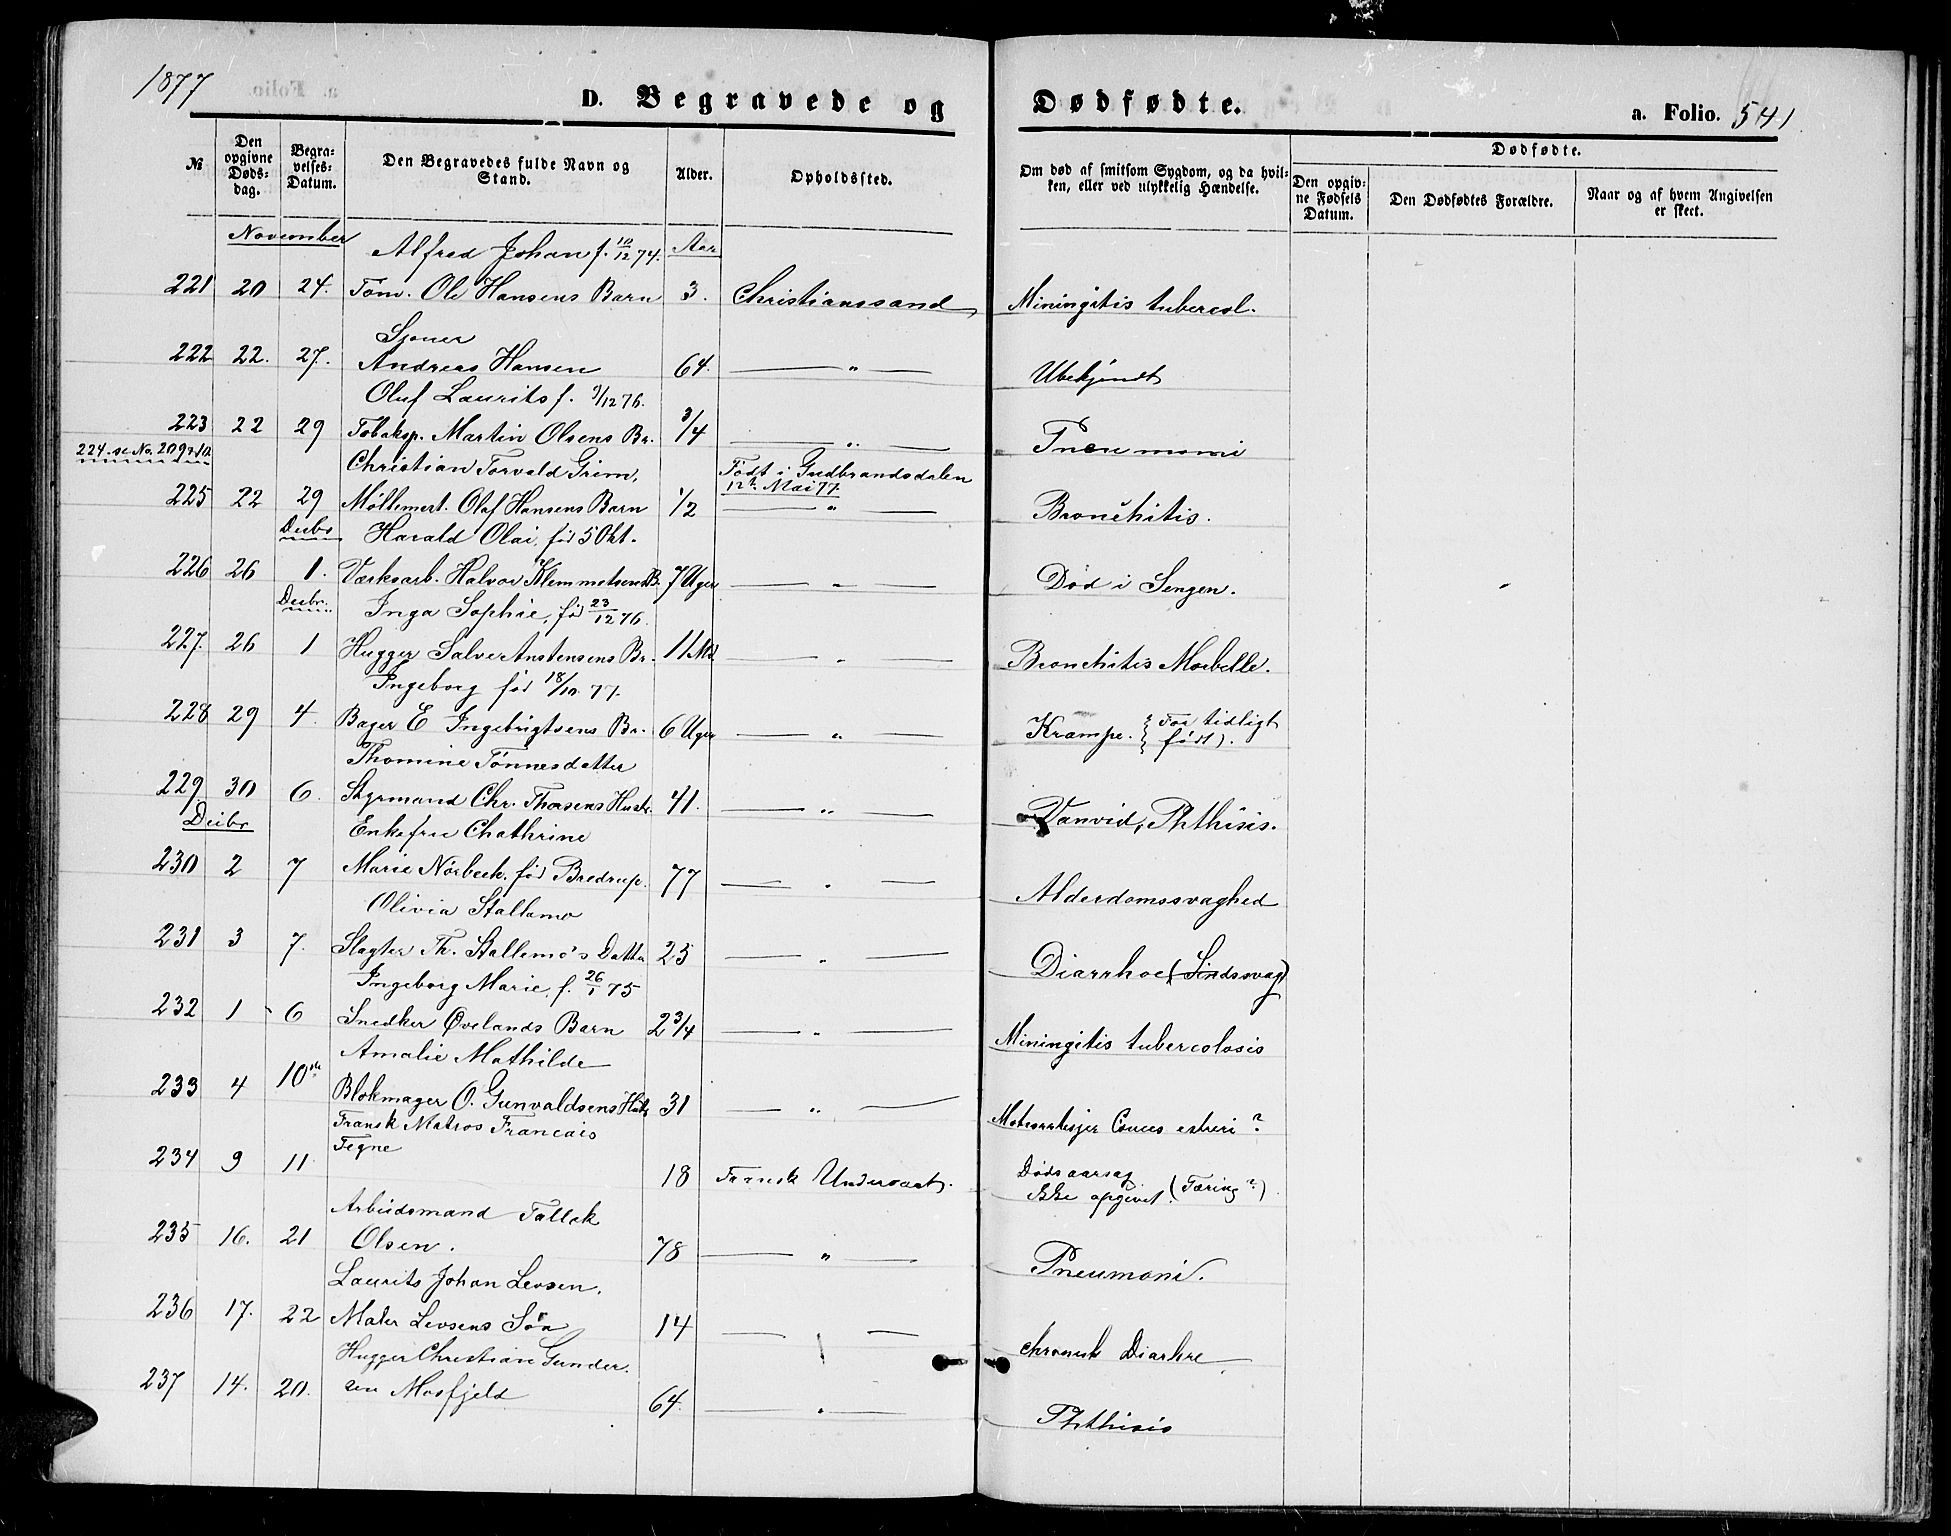 1877
D. Begravede og Dødfødte.
a. Folio. 541.
№
Den opgivne Døds-dag.
Begra-velses-Datum.
Den Begravedes fulde Navn og Stand.
Alder.
Opholdssted.
Om død af smitsom Sygdom, og da hvil-ken, eller ved ulykkelig Hændelse.
Dødfødte.
Den opgiv-ne Fødsels Datum.
Den Dødfødtes Forældre.
Naar og af hvem Angivelsen er skeet.
November Alfred Johan f. 10/12 74. Aar
221 20 24. Tøm. Ole Hansens Barn 3. Christianssand Miningitis tubercol.
Sjouer
222 22. 27. Andreas Hansen 64. — " — Ubekjendt
Oluf Laurits f. 9/12 76.
223 22 29 Tobaksp. Martin Olsens Br. 3/4 — " — Pneumoni
224. se No. 209210
Christian Torvald Grim, Født i Gudbrandsdalen
12te Mai 77.
225 22 29 Møllemest. Olaf Hansens Barn 1/2 — " — Bronchitis.
Decbr Harald Olai, fød 5 Okt.
226 26 1. Værksarb. Halvor Klemmetsens B. 7 Uger — " — Død i Sengen.
Decbr. Inga Sophie, fød 23/12 76.
227. 26 1 Hugger Salve Anstensens Br. 11 Md. — " — Bronchitis Morbelle.
Ingeborg fød 18/10 77.
228 29 4. Bager E Ingebrigtsens Br. 6 Uger — " — Krampe. (For tidligt
født).
Thomine Tønnesdatter
229 30 6. Styrmand Chr. Thorsens Hustr. 41. — " — Vanvid, Phthisis.
Decbr Enkefru Chathrine
230 2 7 Marie Nørbeck, fød Bredrup. 77 — " — Alderdomssvaghed
Olivia Stallemo
231 3 7. Slagter Th. Stallemo's Datter 25 — " — Diarrhoe (Sindssvag)
Ingeborg Marie, f. 26/1 75
232 1 6 Snedker Øvelands Barn 2 3/4 — " — Miningitis tubercolosis
Amalie Mathilde
233 4 10de Blokmager O. Gunvaldsens Hustr 31 — " — ?
Fransk Matros Francais
Tegne
234 9 11 18 Fransk Undersaat. Dødsaarsag
Ikke opgivet. (Tæring?)
Arbeidsmand Tallak
235 16. 21 Olsen. 78 — " — Pneumoni.
Laurits Johan Levsen.
236 17. 22 Maler Levsens Søn 14 — — chronisk Diarhre
Hugger Christian Gunder-
237 14. 20. sen Mosfjeld 64. — " — Phthisis